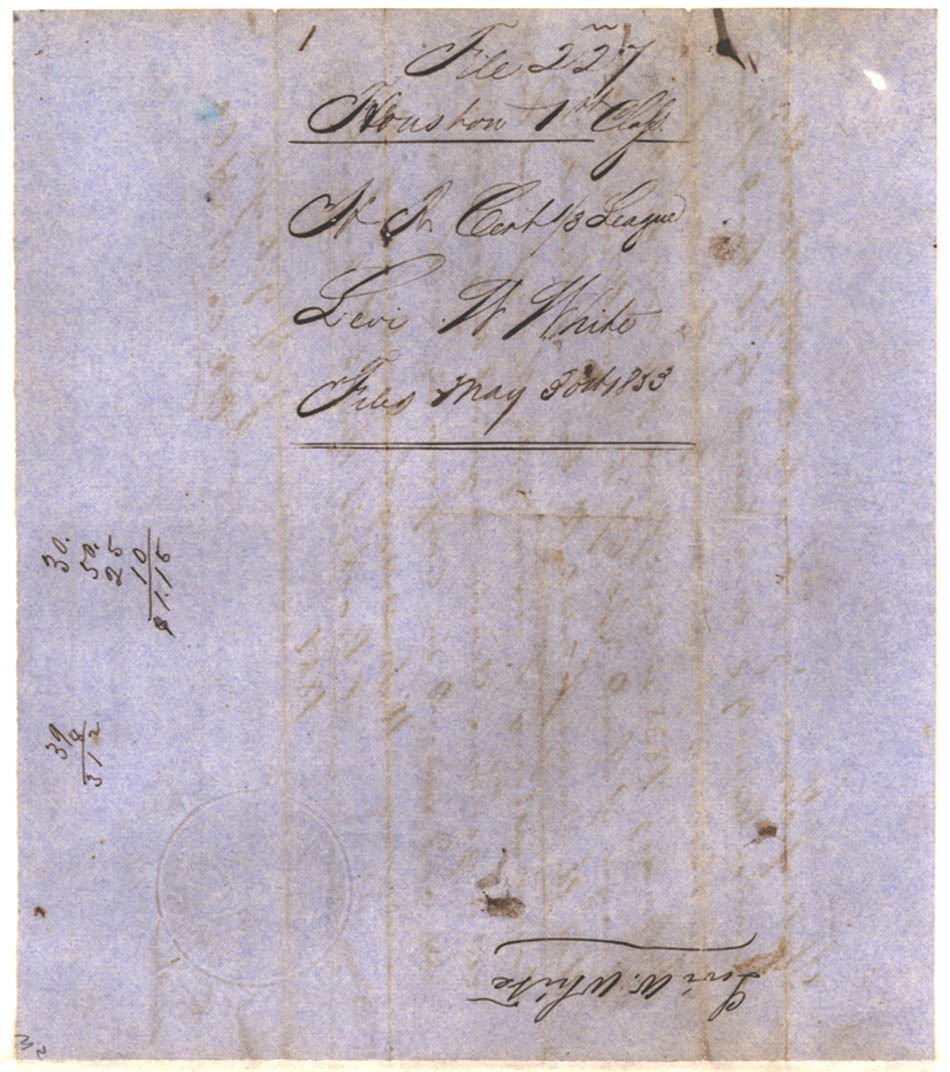 File 227
Houston 1st Class
H R Cert 1/3 League
Levi W White
Filed May 30th 1853
30.
50.
25
10
$1.15
39
8
312
Levi W. White